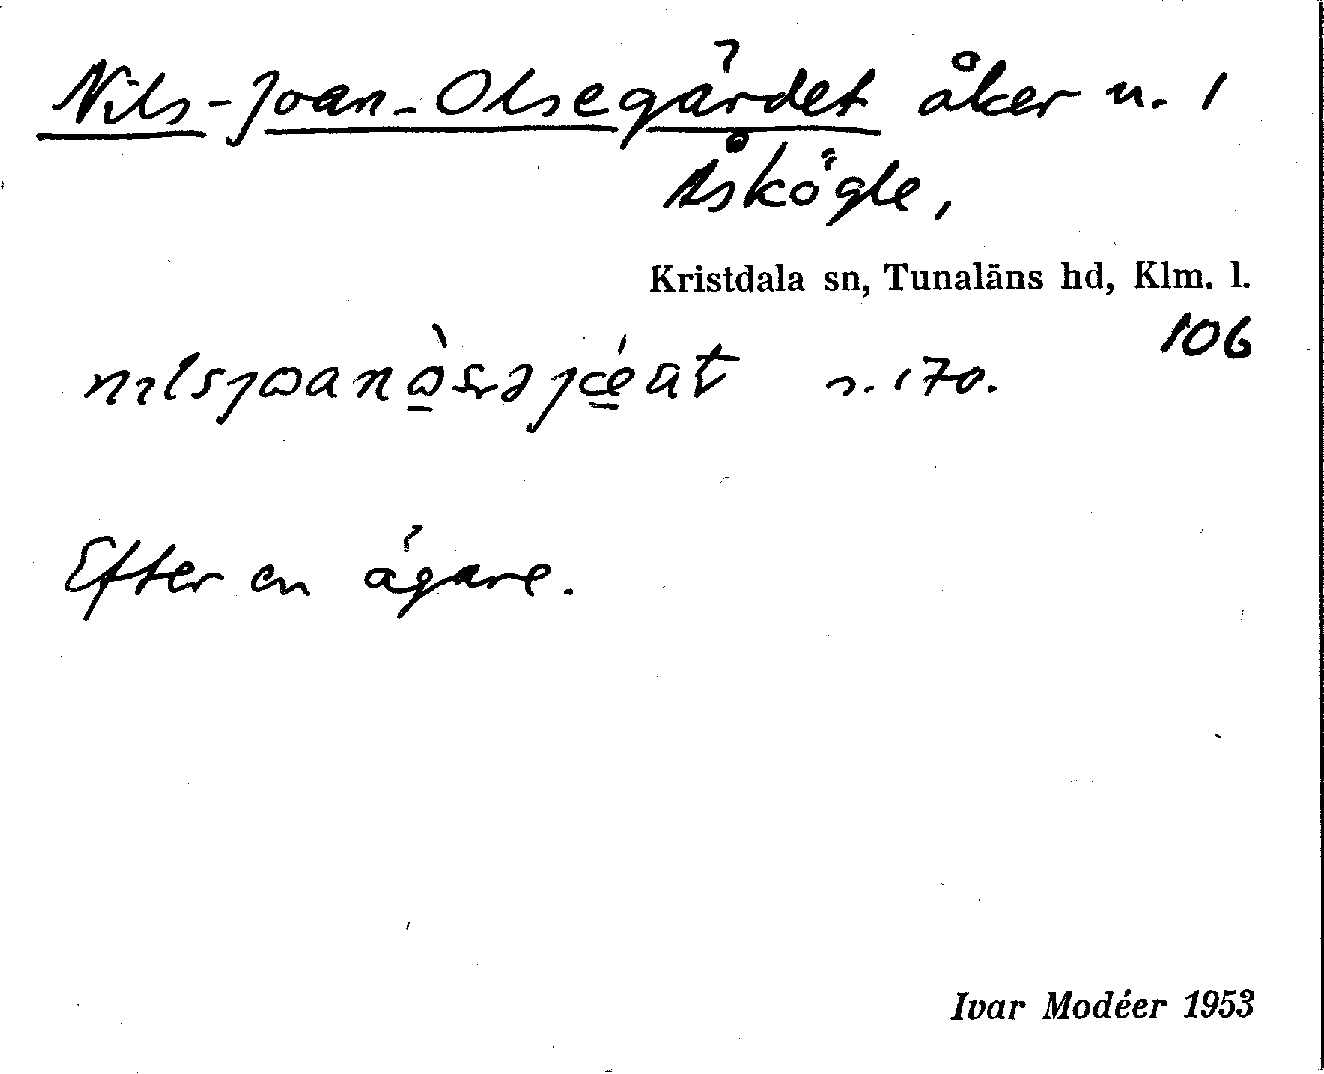 Nils-Joan-Olsegärdet åker n. 1
Åskögle,
Kristdala sn, Tunaläns hd, Klm. l.
106
n. 170.
Efter en ägare.
Ivar Modéer 1953